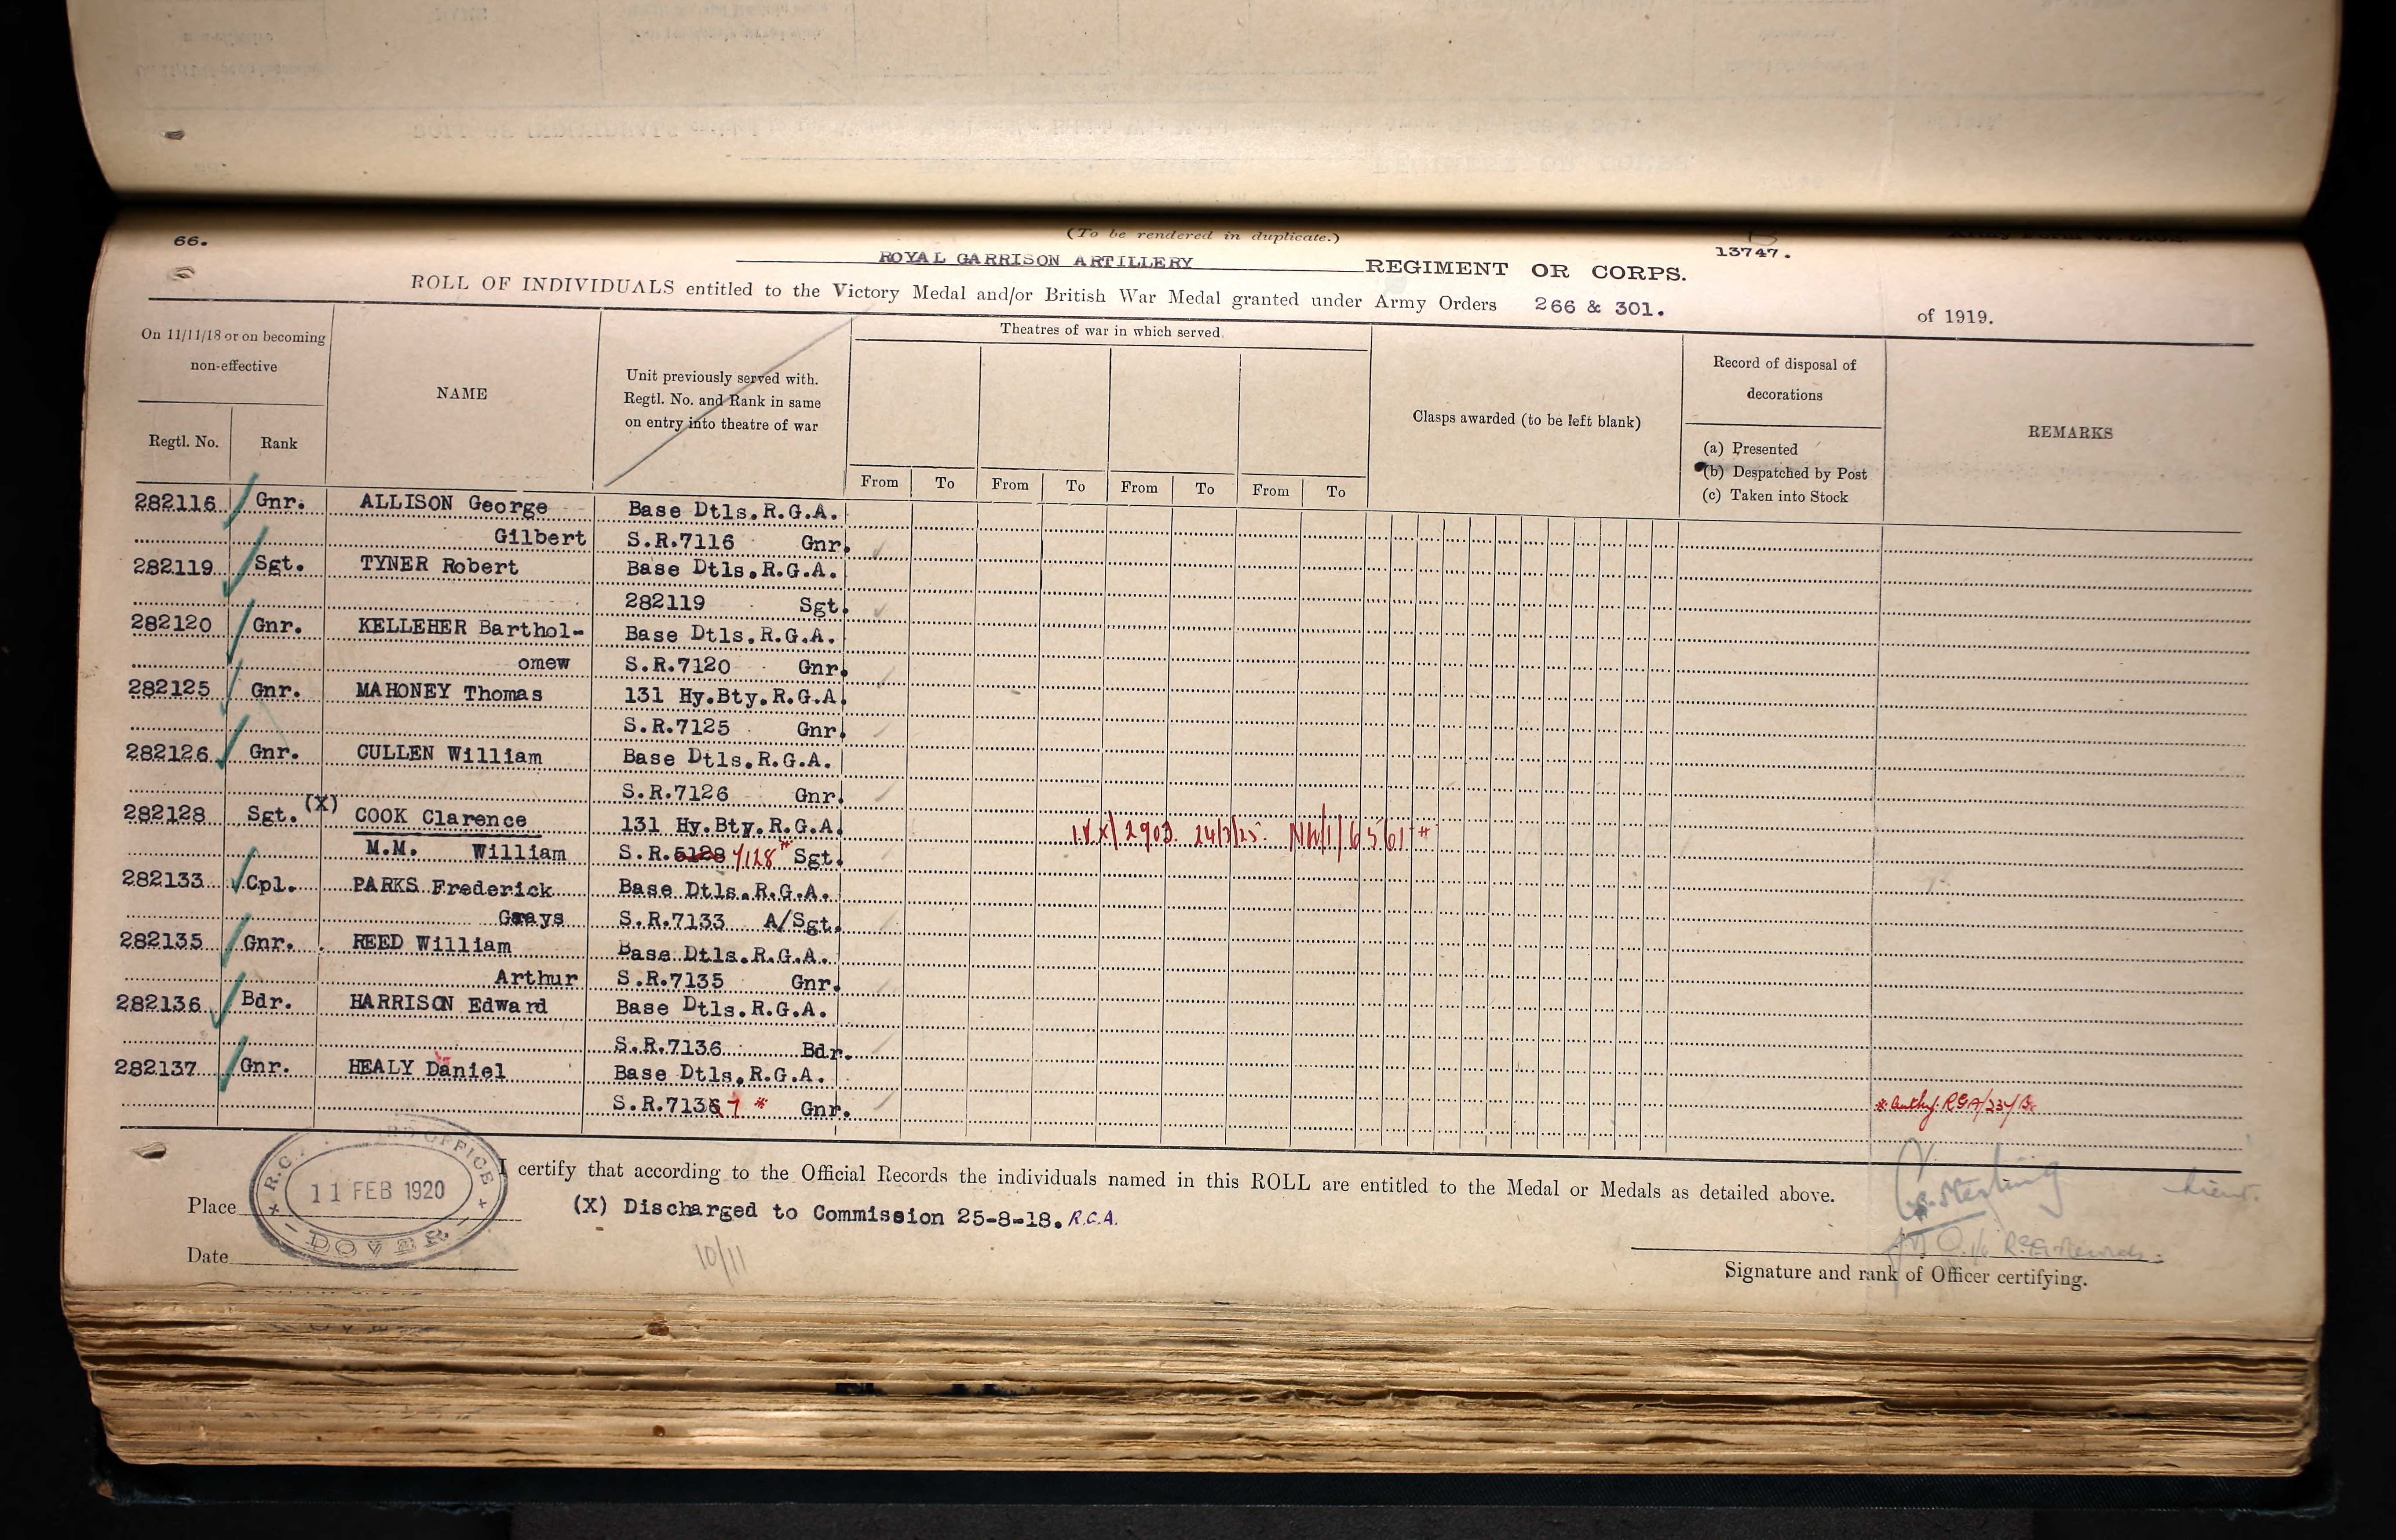 66.
(To be rendered in duplicate.)
13747.
ROYAL GARRISON ARTILLERY REGIMENT OR CORPS.
ROLL OF INDIVIDUALS entitled to the Victory Medal and/or British War Medal granted under Army Orders 266 & 301. of 1919.
On 11/11/18 or on becoming non-effective
Regtl. No.
Rank
NAME
Unit previously served with. Regtl. No. and Rank in same on entry into theatre of war
Theatres of war in which served
From To From To From To From To
Clasps awarded (to be left blank)
Record of disposal of decorations
(a) Presented
(b) Despatched by Post
(c) Taken into Stock
REMARKS
282116 Gnr. ALLISON George Base Dtls.R.G.A.
Gilbert S.R.7116 Gnr.
282119 Sgt. TYNER Robert Base Dtls.R.G.A.
282119 Sgt.
282120 Gnr. KELLEHER Barthol- Base Dtls.R.G.A.
omew S.R.7120 Gnr.
282125 Gnr. MAHONEY Thomas 131 Hy.Bty.R.G.A.
S.R.7125 Gnr.
282126 Gnr. CULLEN William Base Dtls.R.G.A.
S.R.7126 Gnr.
282128 Sgt. (X) COOK Clarence 131 Hy.Bty.R.G.A. 24/3/25. NW/1/6561 *
M.M. William S.R.5128 7128 * Sgt.
282133 Cpl. PARKS Frederick Base Dtls.R.G.A.
Grays S.R.7133 A/Sgt.
282135 Gnr. REED William Base Dtls.R.G.A.
Arthur S.R.7135 Gnr.
282136 Bdr. HARRISON Edward Base Dtls.R.G.A.
S.R.7136 Bdr.
282137 Gnr. HEALY Daniel Base Dtls.R.G.A.
S.R.7136 7 * Gnr.
* Authy. RGA/
I certify that according to the Official Records the individuals named in this ROLL are entitled to the Medal or Medals as detailed above.
(X) Discharged to Commission 25-8-18. R.G.A.
Place
Date
OFFICE
11 FEB 1920
DOVER
10/11
Lieut.
Records.
Signature and rank of Officer certifying.